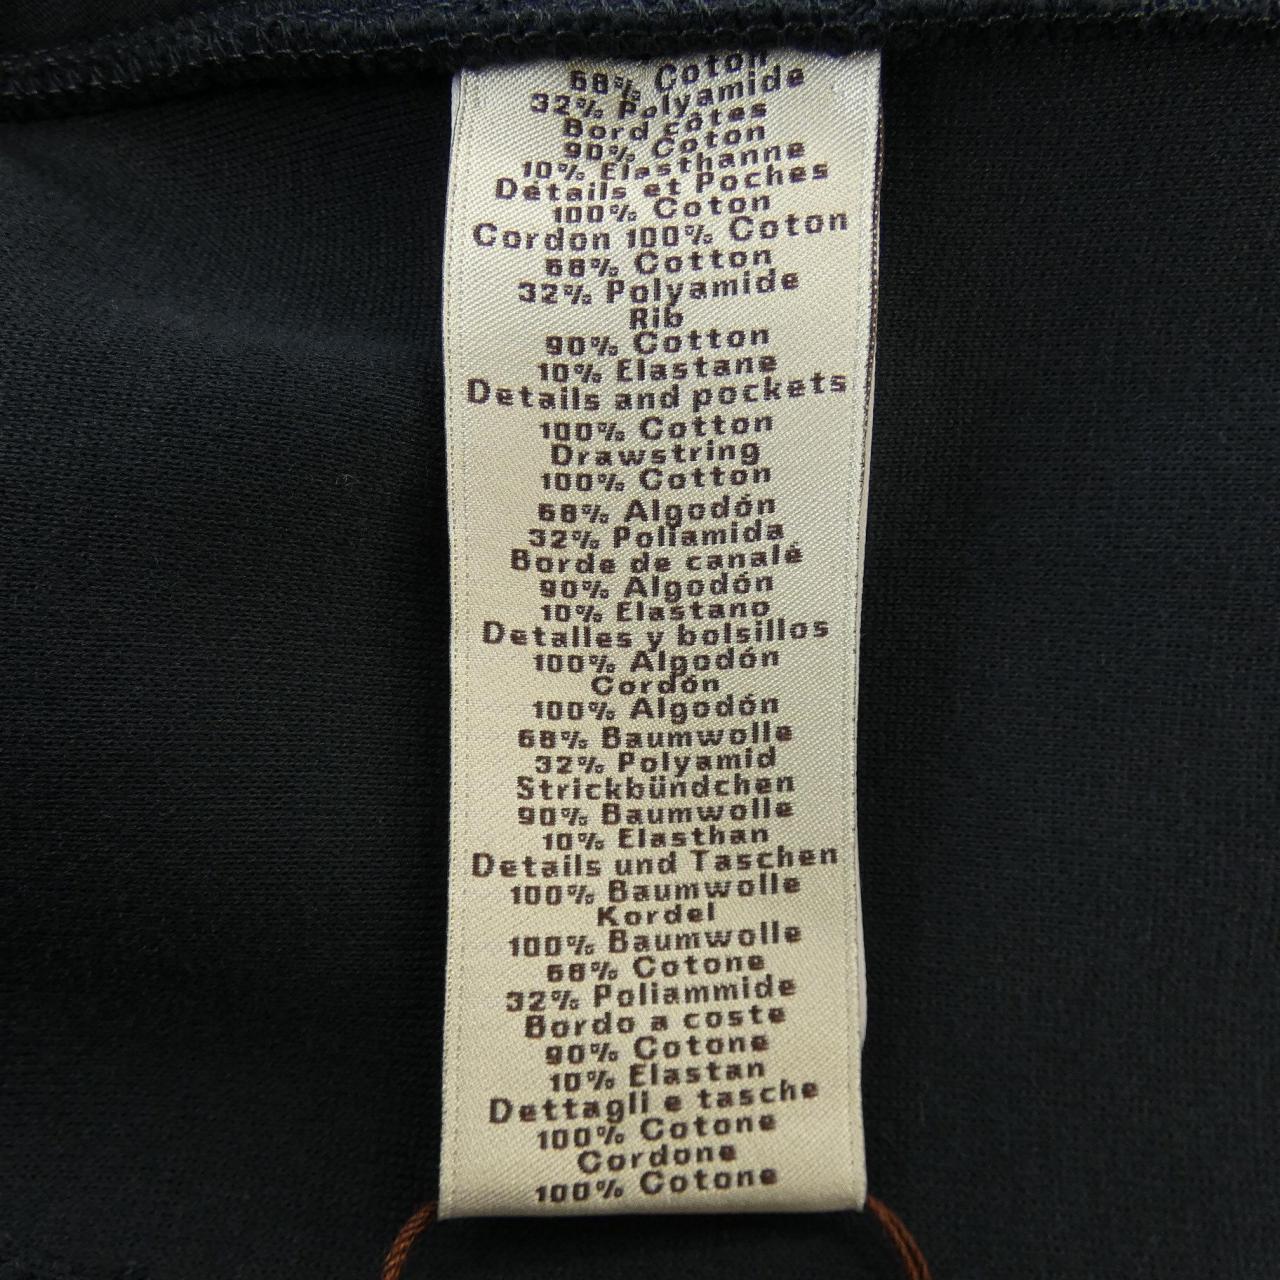 68% Coton
32% Polyamide
Bord côtes
90% Coton
10% Elasthanne
Détails et Poches
100% Coton
Cordon 100% Coton
68% Cotton
32% Polyamide
Rib
90% Cotton
10% Elastane
Details and pockets
100% Cotton
Drawstring
100% Cotton
68% Algodón
32% Poliamida
Borde de canalé
90% Algodón
10% Elastano
Detalles y bolsillos
100% Algodón
Cordón
100% Algodón
68% Baumwolle
32% Polyamid
Strickbündchen
90% Baumwolle
10% Elasthan
Details und Taschen
100% Baumwolle
Kordel
100% Baumwolle
68% Cotone
32% Poliammide
Bordo a coste
90% Cotone
10% Elastan
Dettagli e tasche
100% Cotone
Cordone
100% Cotone